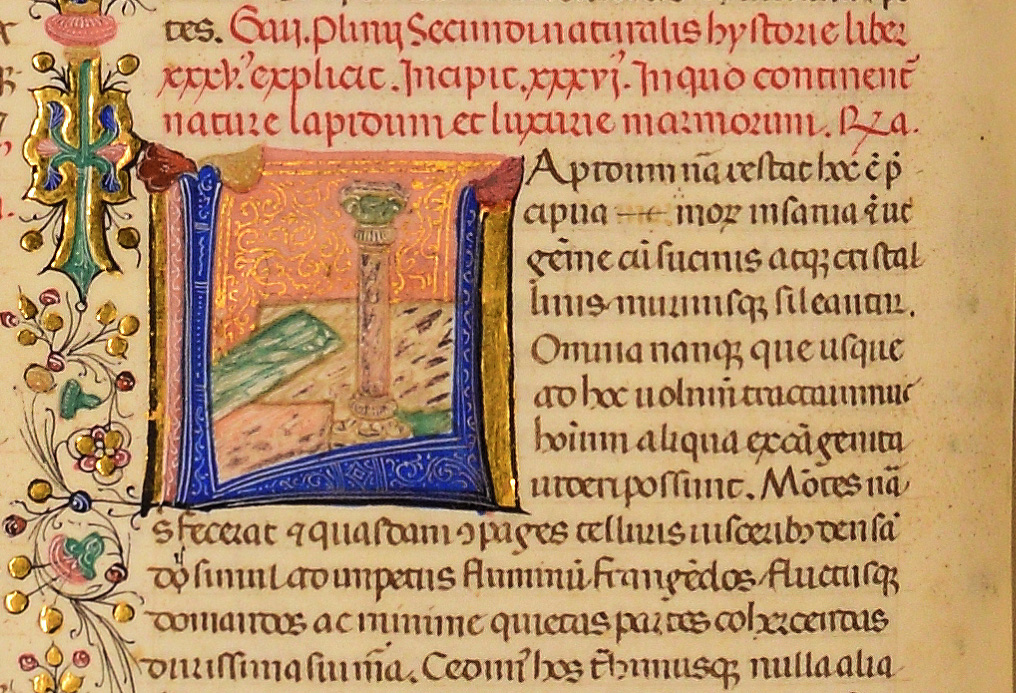 tes. Gaij. Plinij Secundi naturalis hystorie liber
xxxv. explicit. Incipit. xxxvj. In quo continent̄
nature lapidum et luxurie marmorum. Rx̄a.
Lapidum nā restat hoc ē p̄
cipua morꝝ insania
gēme cū sucinis atqꝫ cristal
linis murrinisqꝫ sileantur.
Omnia nanqꝫ que usque
ad hoc uolumē tractauimus
hoīum aliqua excā genita
uideri possunt. Mōtes nā
s fecerat ⁊ quasdam ꝯpages telluris uisceribꝫ densā
dis simul ad impetus fluminū frangēdos fluctusqꝫ
domandos ac minime quietas partes cohercentas
durissima sui mā. Cedim̄ hos t̄himusqꝫ nulla alia